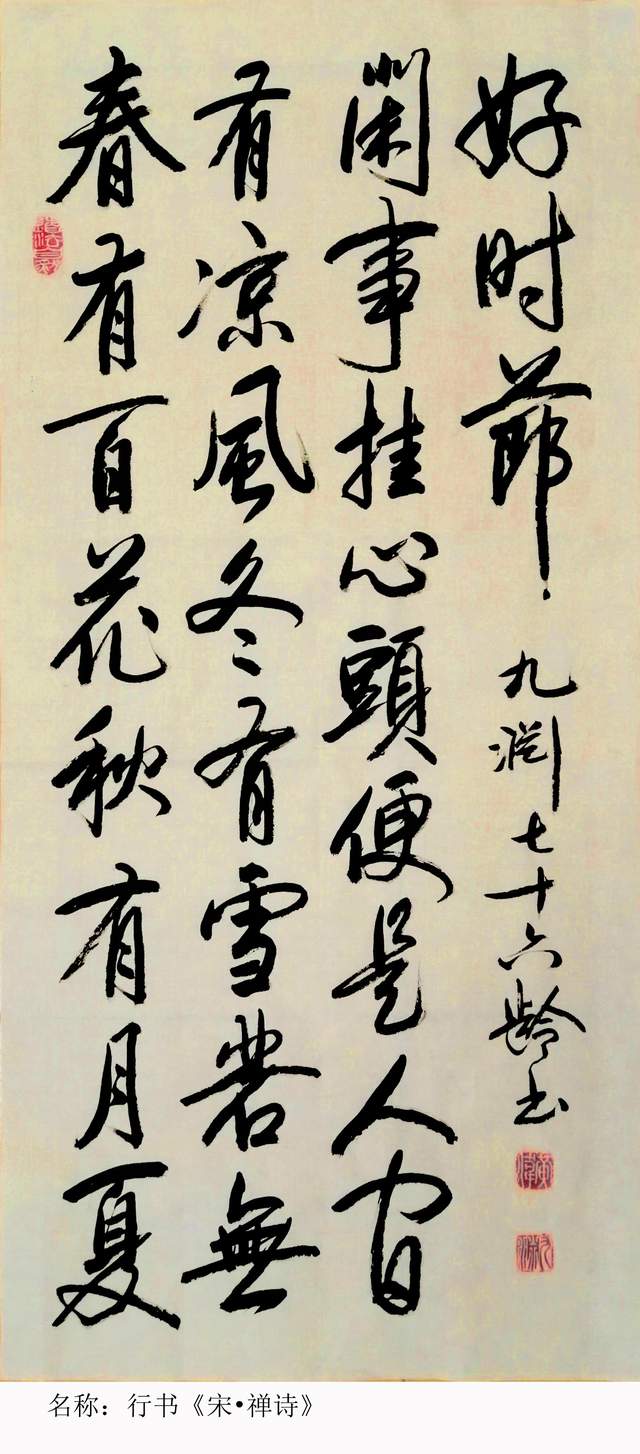 春有百花秋有月夏
有凉風冬有雪若無
閑事挂心頭便是人間
好时節
九渊七十六龄书
名称：行书《宋•禅诗》